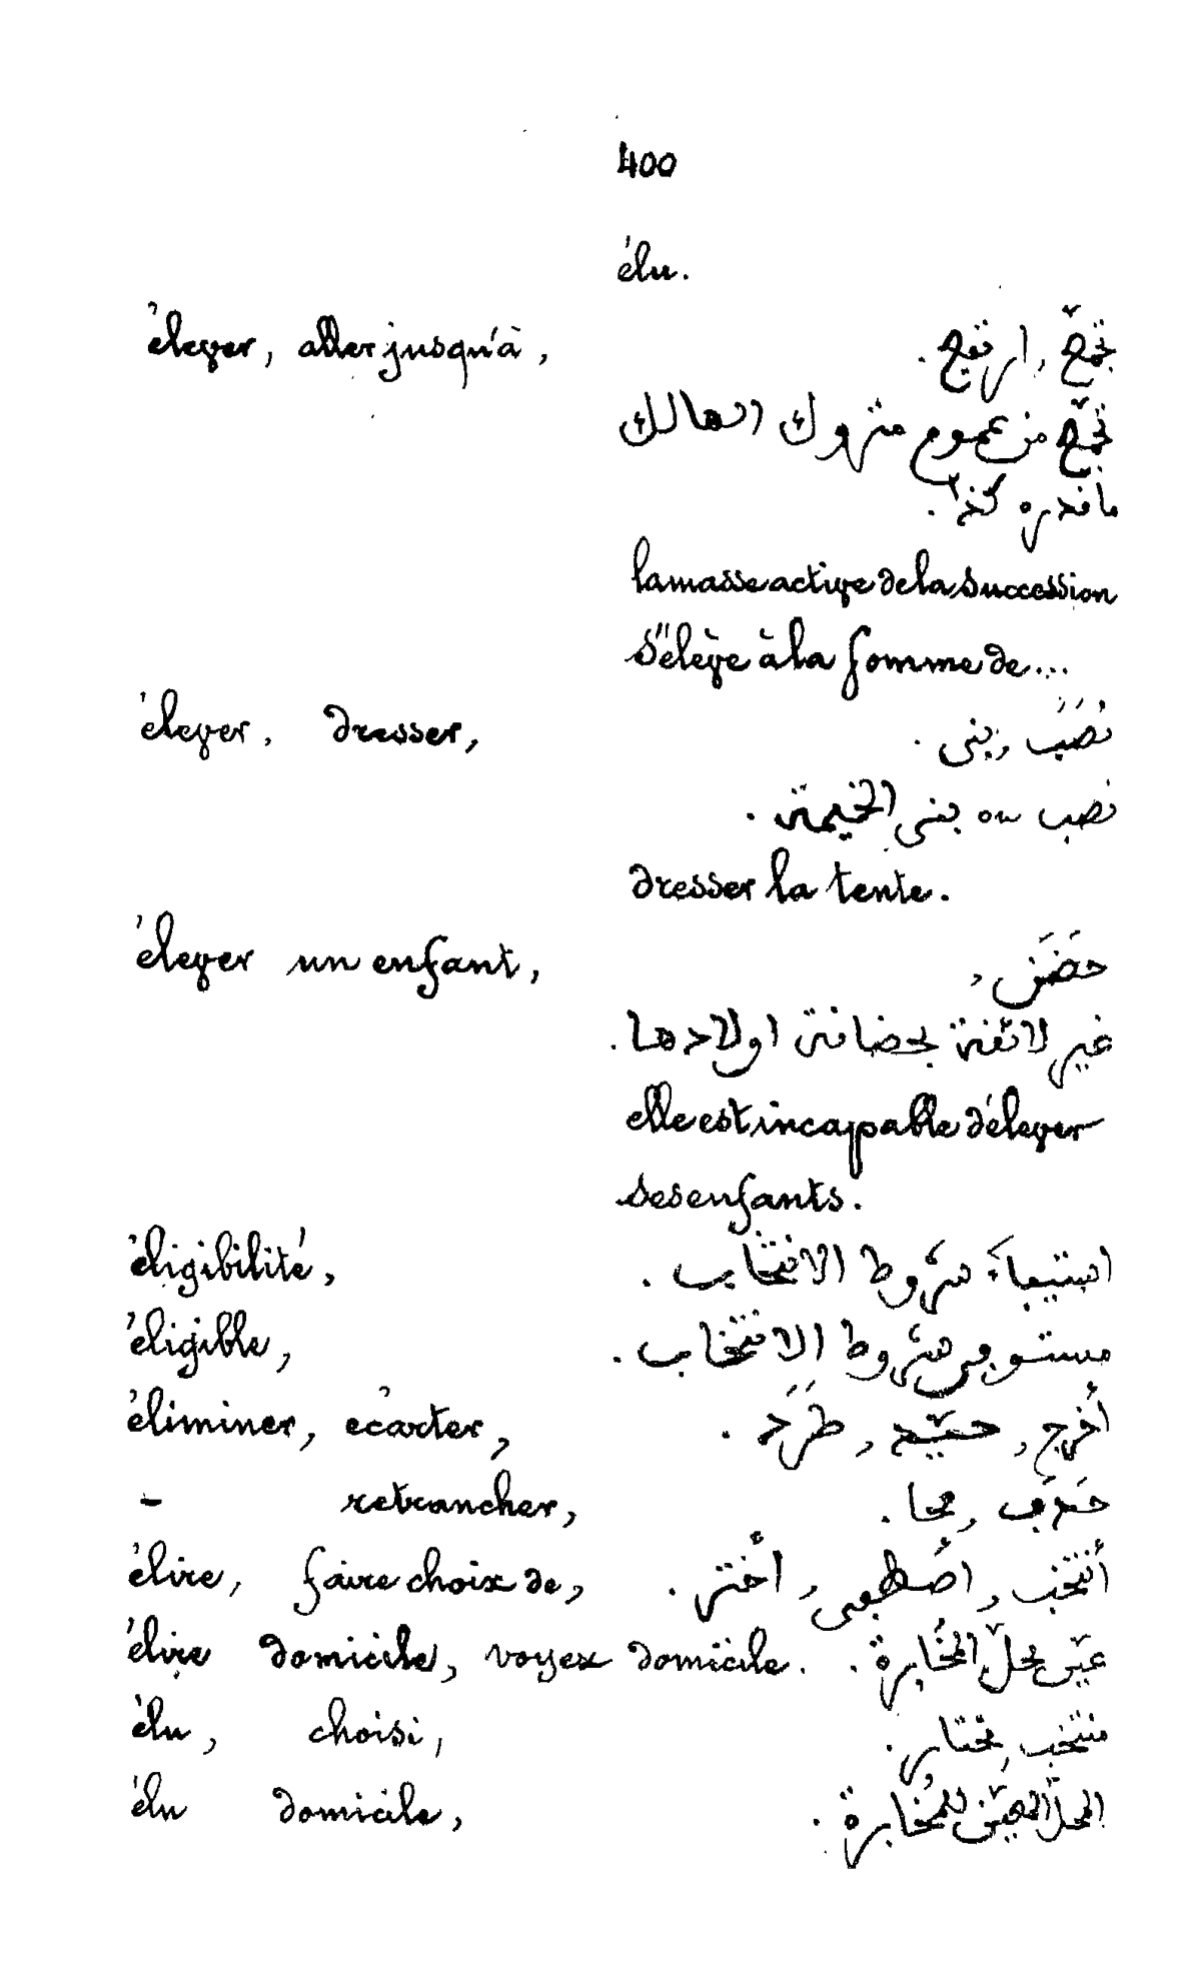 400
élu.
élever, aller jusqu'à, تجمّع, ارتفع.
تجمّع من عموم متروك الهالك
ما قدره كذا.
la masse active de la succession
s'élève à la somme de...
élever, dresser, نَصَبَ, بنى.
نصب ou بنى الخيمة.
dresser la tente.
élever un enfant, حَضَنَ,
غير لائقة بحضانة اولادها.
elle est incapable d'élever
ses enfants.
éligibilité, استيفاءَ شروط الانتخاب.
éligible, مستوفى شروط الانتخاب.
éliminer, écarter, أخرج, طَرَدَ.
- retrancher, حَذَف, محا.
élire, faire choix de, أنتخب, اصطفى, اختر.
élire domicile, voyez domicile. عيّن محلّ المُخابرة.
élu, choisi, منتخب, مختار.
élu domicile, المحلّ المعيّن للمُخابرة.